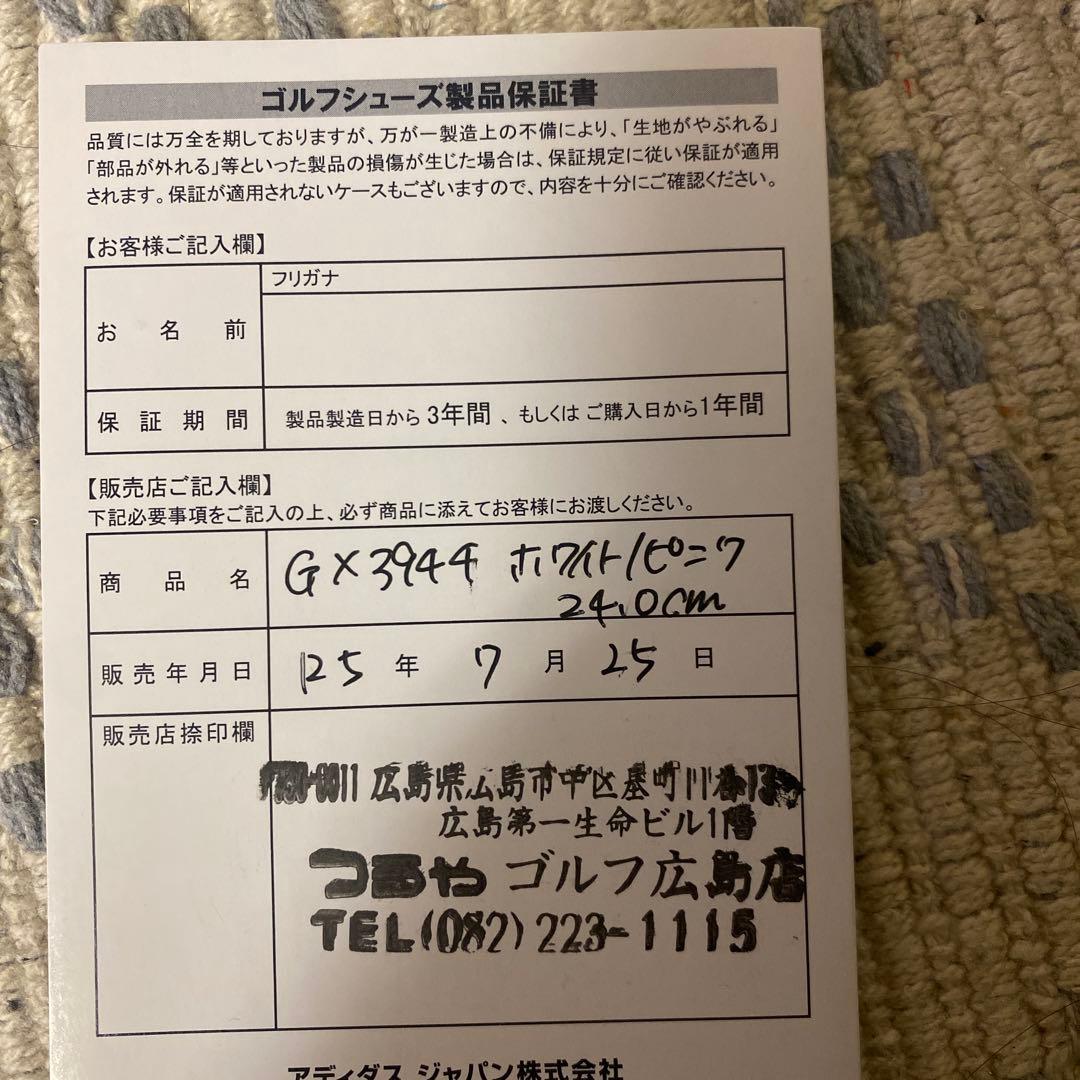 ゴルフシューズ製品保証書
品質には万全を期しておりますが、万が一製造上の不備により、「生地がやぶれる」
「部品が外れる」等といった製品の損傷が生じた場合は、保証規定に従い保証が適用
されます。保証が適用されないケースもございますので、内容を十分にご確認ください。
【お客様ご記入欄】
フリガナ
お名前
保証期間 製品製造日から 3年間 、もしくは ご購入日から1年間
【販売店ご記入欄】
下記必要事項をご記入の上、必ず商品に添えてお客様にお渡しください。
商品名 GX3944 ホワイト/ピンク
24.0cm
販売年月日 '25 年 7 月 25 日
販売店捺印欄
広島県広島市中区基町
広島第一生命ビル1階
つるやゴルフ広島店
TEL(082)223-1115
アディダス ジャパン株式会社